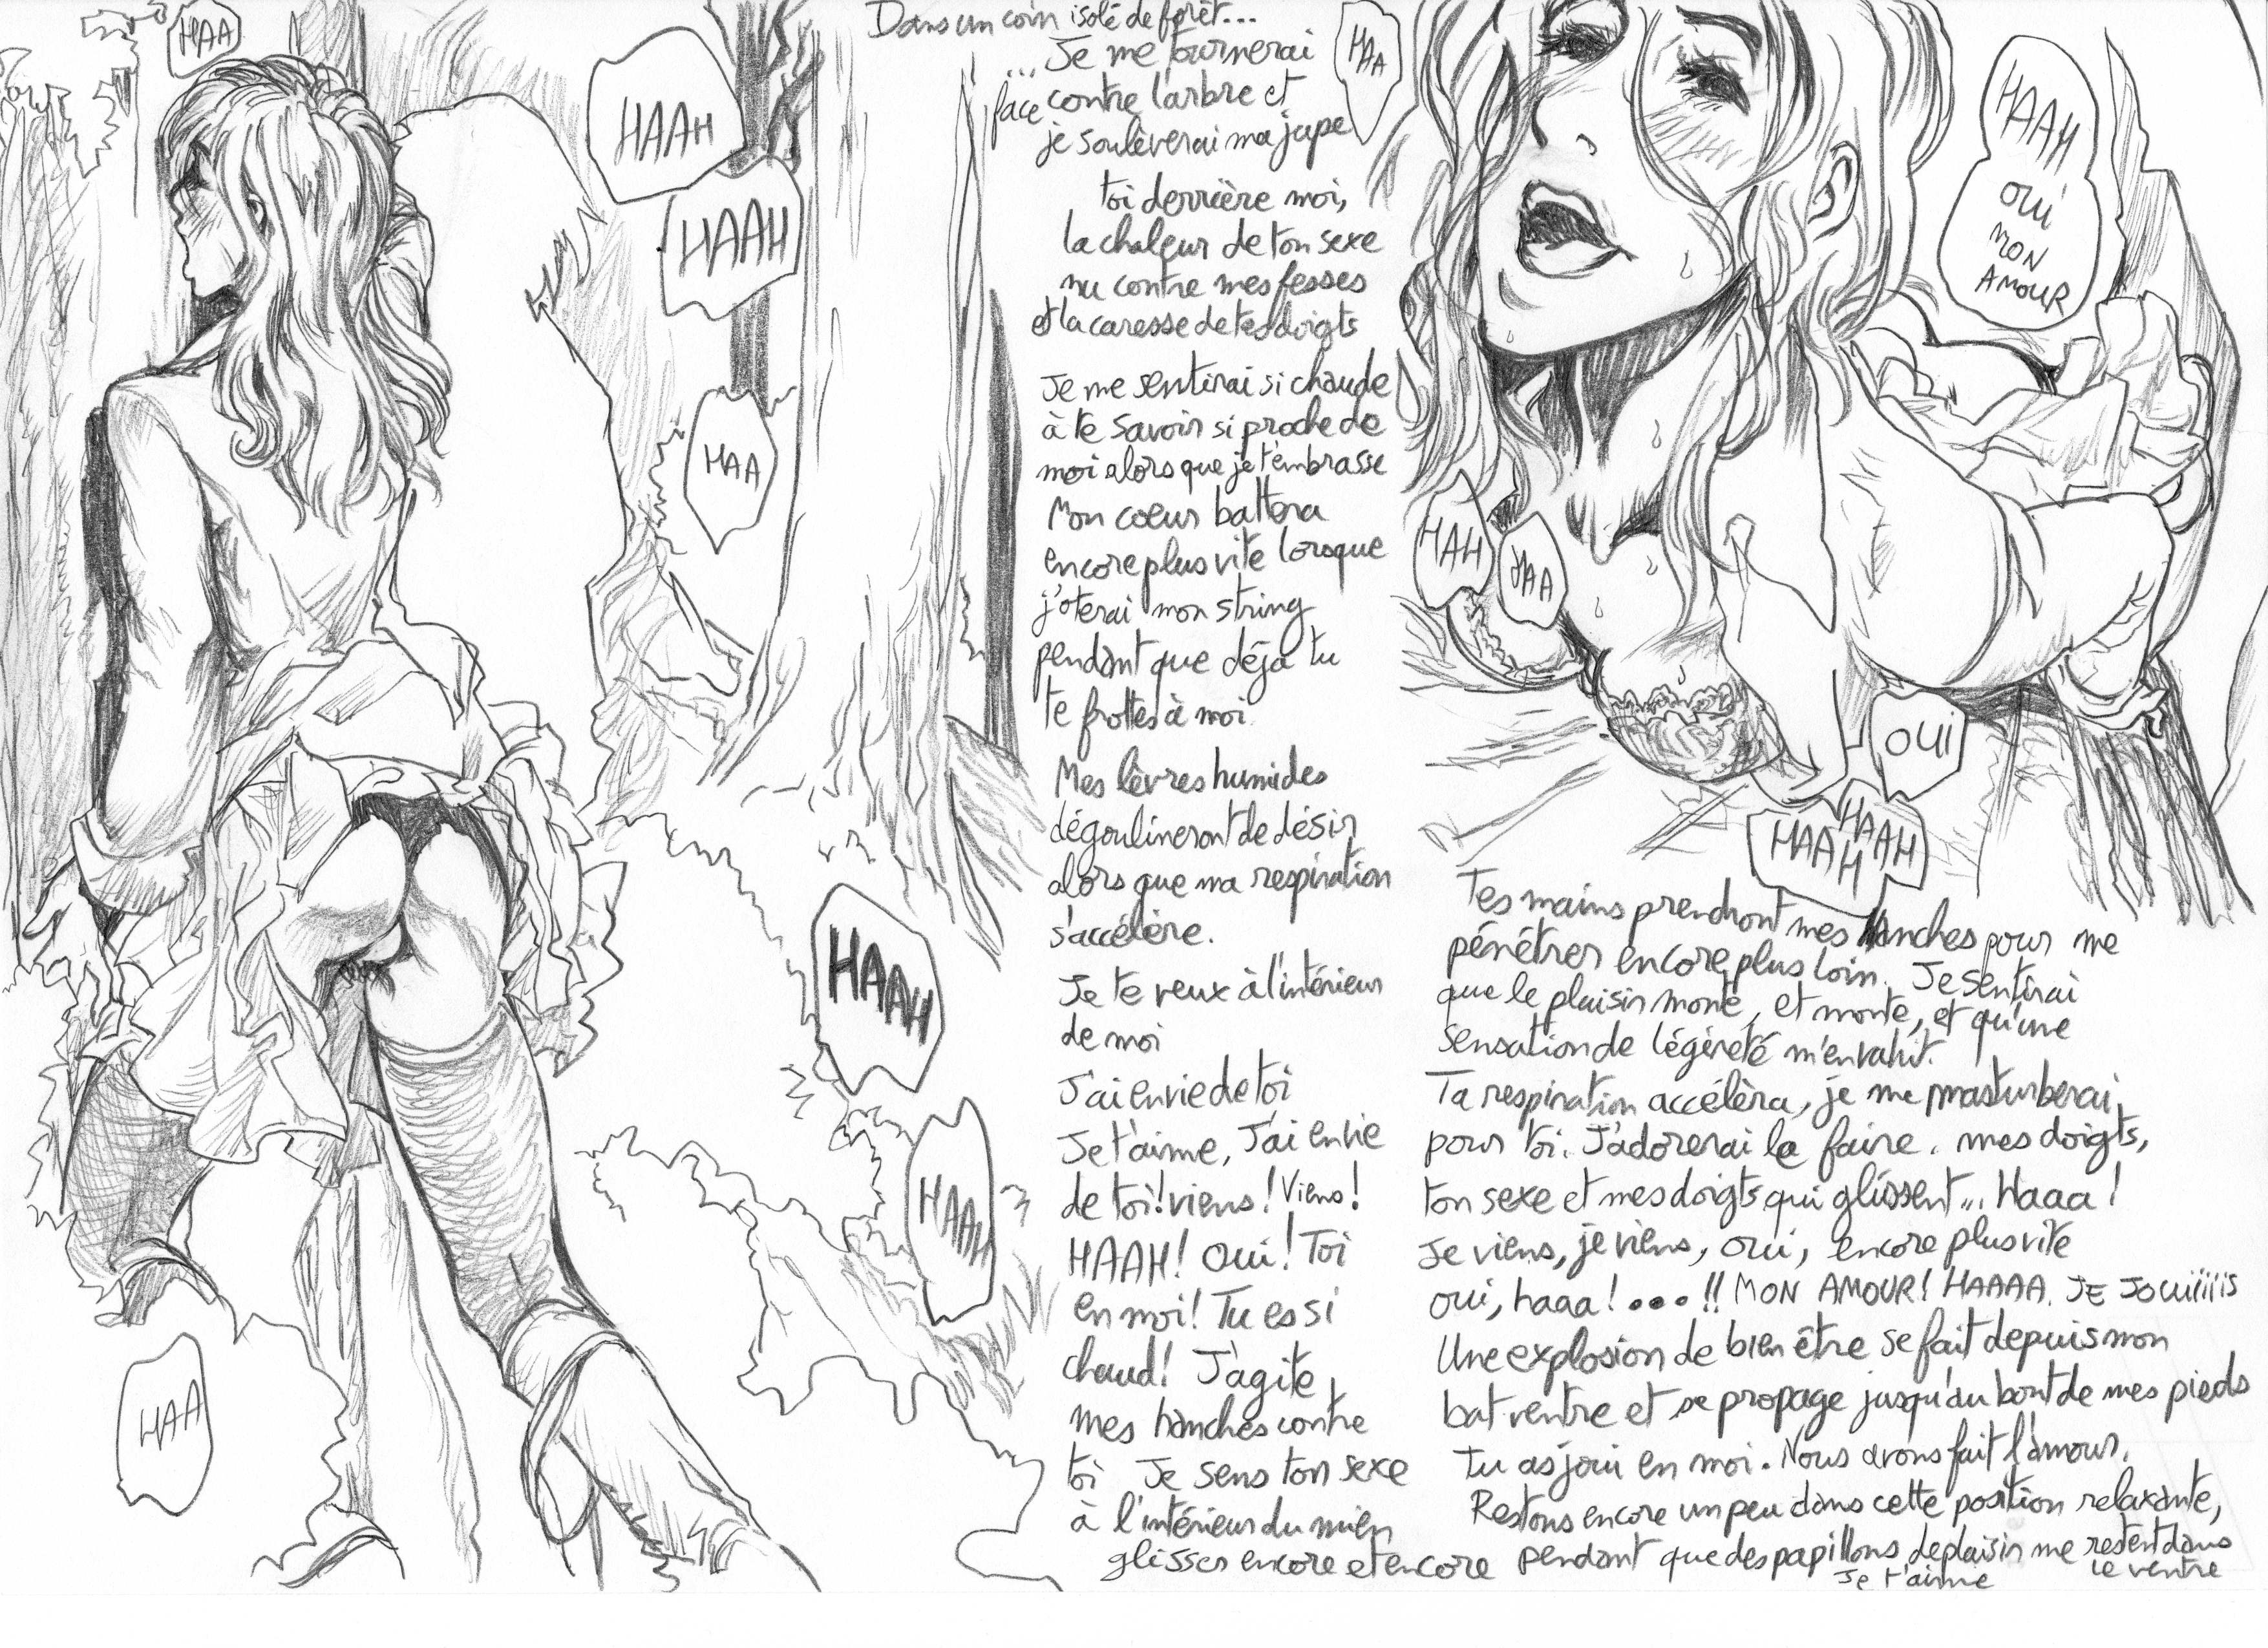 HAA
HAAH
HAAH
HAA
HAAH
HAAH
HAA
Dans un coin isolé de forêt...
... Je me tournerai
face contre l'arbre et
je soulèverai ma jupe
toi derrière moi,
la chaleur de ton sexe
nu contre mes fesses
et la caresse de tes doigts
Je me sentirai si chaude
à te savoir si proche de
moi alors que je t'embrasse
Mon coeur battera
encore plus vite lorsque
j'oterai mon string
pendant que déjà tu
te frottes à moi.
Mes lèvres humides
dégoulineront de désir
alors que ma respiration
s'accélère.
Je te veux à l'intérieur
de moi
J'ai envie de toi
Je t'aime, J'ai envie
de toi! viens! Viens!
HAAH! Oui! Toi
en moi! Tu es si
chaud! J'agite
mes hanches contre
toi Je sens ton sexe
à l'intérieur du mien
glisser encore et encore
HAA
HAAH
OUI
MON
AMOUR
HAH
HAA
OUI
HAAH
HAAH
Tes mains prendront mes hanches pour me
pénétrer encore plus loin. Je sentirai
que le plaisir monte, et monte, et qu'une
sensation de légèreté m'envahit.
Ta respiration accélèra, je me masturberai
pour toi. J'adorerai le faire. mes doigts,
ton sexe et mes doigts qui glissent... Haaa!
Je viens, je viens, oui, encore plus vite
oui, haaa!...!! MON AMOUR! HAAAA. JE JOUIIIIIS
Une explosion de bien être se fait depuis mon
bat ventre et se propage jusqu'au bout de mes pieds
Tu as joui en moi. Nous avons fait l'amour.
Restons encore un peu dans cette position relaxante,
pendant que des papillons de plaisir me restent dans
le ventre
Je t'aime